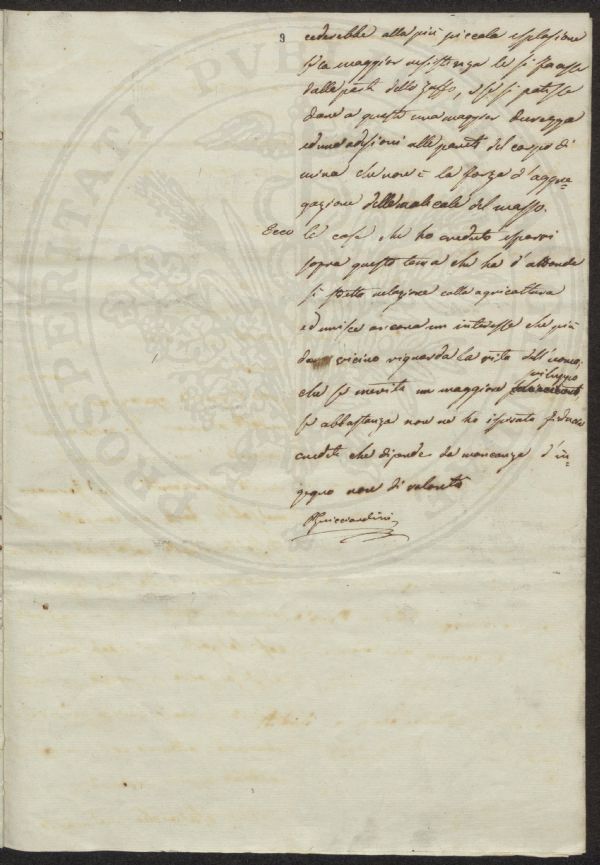 9
cederebbe alla più piccola esplosione
se la maggior resistenza le si facesse
dalla parte dello zaffo, e se si potesse
dare a questo una maggior durezza
ed una adesione alle pareti del corpo di
mina che non è la forza d'aggre=
gazione delle molecole del masso.
Ecco le cose che ho creduto esporvi
sopra questo tema che ha d'altronde
sì stretta relazione colla agricoltura
ed unisce ancora un interesse che più
da vicino riguarda la vita dell'uomo;
sviluppo
che se merita un maggiore
se abbastanza non ne ho ispirato
crediate che dipende da mancanza d'in=
gegno non di volontà
PGuicciardini
PROSPERITATI PUBL